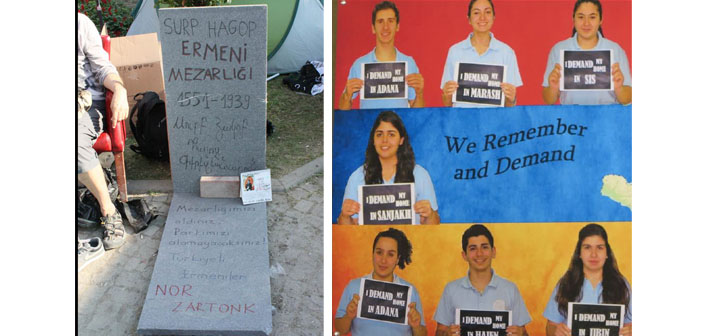 SURP HAGOP
ERMENİ
MEZARLIĞI
1551-1939
Mezarlığımızı
aldınız..
Parkımızı
alamayacaksınız!
Türkiyeli
Ermeniler
NOR
ZARTONK
I DEMAND MY
HOME
IN ADANA
I DEMAND MY
HOME
IN MARASH
I DEMAND MY
HOME
IN SIS
We Remember
and Demand
I DEMAND MY
HOME
IN SANJAKH
I DEMAND MY
HOME
IN ADANA
I DEMAND MY
HOME
IN
I DEMAND MY
HOME
IN